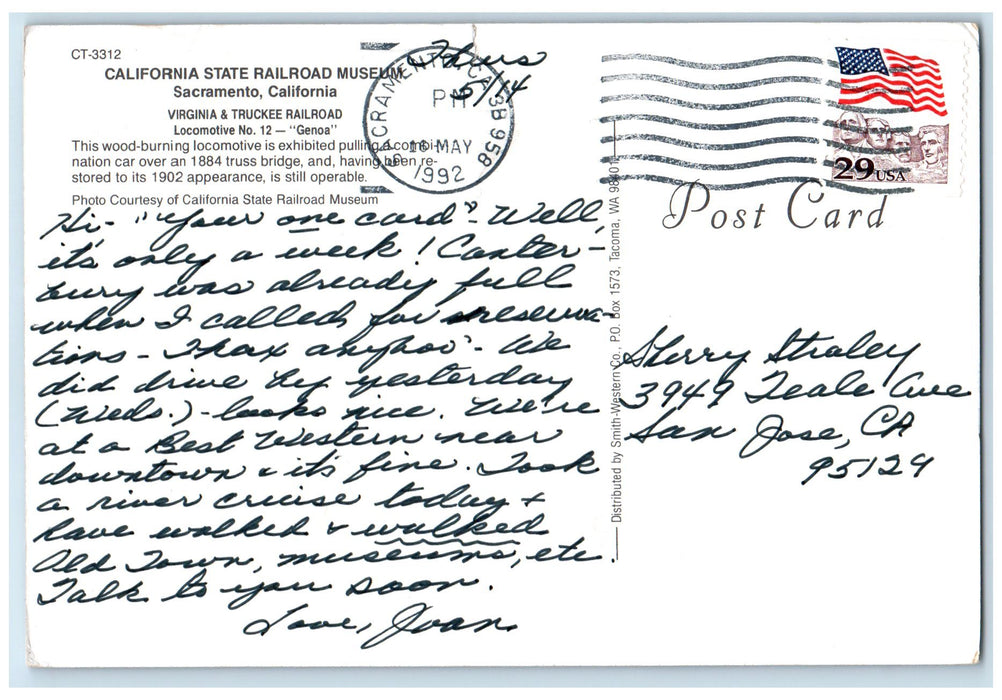 CT-3312
CALIFORNIA STATE RAILROAD MUSEUM
Sacramento, California
VIRGINIA & TRUCKEE RAILROAD
Locomotive No. 12 — "Genoa"
This wood-burning locomotive is exhibited pulling a combi-
nation car over an 1884 truss bridge, and, having been re-
stored to its 1902 appearance, is still operable.
Photo Courtesy of California State Railroad Museum
Thurs
5/14
SACRAMENTO, CA 958
PM
16 MAY
1992
Hi - "Your one card" - Well,
it's only a week! Canter-
bury was already full
when I called for reserva-
tions - Thax anyhoo" - We
did drive by yesterday
(Weds.) - looks nice. We're
at a Best Western near
downtown & it's fine. Took
a river cruise today +
have walked & walked
Old Town, museums, etc.
Talk to you soon.
Love, Joan
Distributed by Smith-Western Co., P.O. Box 1573, Tacoma, WA 98401
29 USA
Post Card
Sherry Straley
3949 Teale Ave
San Jose, CA
95129